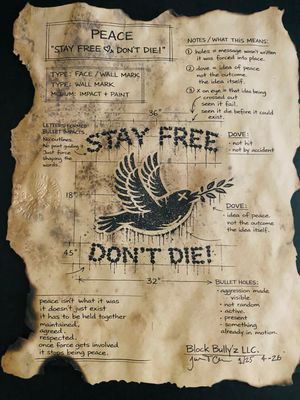 PEACE
"STAY FREE ♡ DON'T DIE!"
TYPE: FACE / WALL MARK
TYPE: WALL MARK
MEDIUM: IMPACT + PAINT
NOTES / WHAT THIS MEANS:
① holes = message won't written
it was forced into place.
② dove = idea of peace
not the outcome
the idea itself.
③ X on eye = that idea being
crossed out
seen it fail.
seen it die before it could
exist.
LETTERS FORMED
BULLET IMPACTS
No outlines.
No paint guiding it
Just force
shaping the
words.
36"
STAY FREE
DOVE:
• not hit
• not by accident
18"
DOVE:
• idea of peace.
not the outcome
the idea itself.
45"
DON'T DIE!
32"
BULLET HOLES:
• aggression made
visible.
• not random
• active.
• present
• something
already in motion.
peace isn't what it was
it doesn't just exist
it has to be held together
maintained.
agreed.
respected.
once force gets involved
it stops being peace.
Block Bully'z LLC.
1/25 4-26